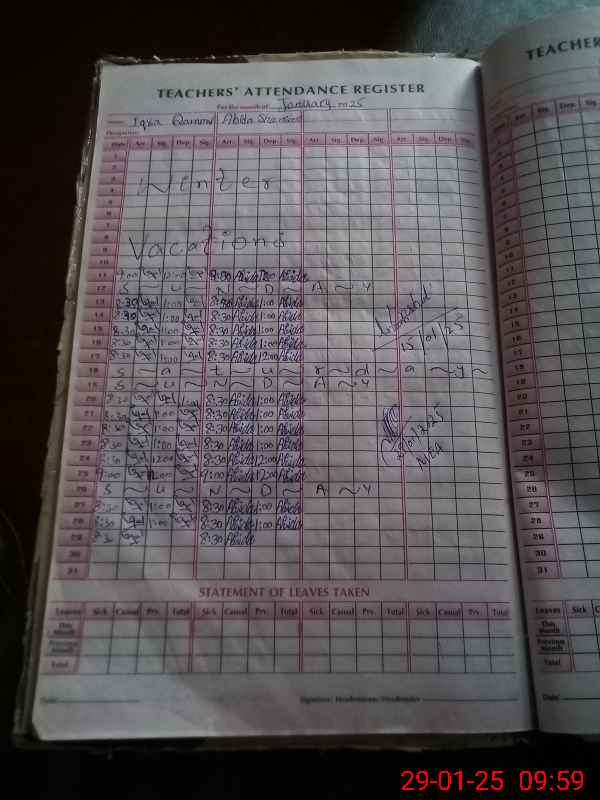 TEACHERS' ATTENDANCE REGISTER
TEACHER
For the month of January 2025
Name: Iqra Qamar Abida
Designation:
Date Arr. Sig. Dep. Sig. Arr. Sig. Dep. Sig. Arr. Sig. Dep. Sig. Arr. Sig. Dep. Sig.
1
2
3
4
5
6
7
8
9
10
Winter
Vacations
11 9:00 12:00 Abida 1:00 Abida
12 S ~ U ~ N ~ D ~ A ~ Y
13 8:30 1:00 8:30 Abida 1:00 Abida
14 8:30 1:00 8:30 Abida 1:00 Abida
15 8:30 1:00 8:30 Abida 1:00 Abida
16 8:30 1:00 8:30 Abida 1:00 Abida
17 8:30 8:30 Abida 12:00 Abida
15/01/25
18 S ~ a ~ t ~ u ~ r ~ d ~ a ~ y ~
19 S ~ U ~ N ~ D ~ A ~ Y
20 8:30 8:30 Abida 1:00 Abida
21 8:30 1:00 8:30 Abida 1:00 Abida
22 8:30 1:00 8:30 Abida 1:00 Abida
23 8:30 1:00 8:30 Abida 1:00 Abida
24 8:30 12:00 8:30 Abida 12:00 Abida
25 9:00 12:00 9:00 Abida 12:00 Abida
MEA
26 S ~ U ~ N ~ D ~ A ~ Y
27 8:30 1:00 8:30 Abida 1:00 Abida
28 8:30 1:00 8:30 Abida 1:00 Abida
29 8:30 8:30 Abida
30
31
STATEMENT OF LEAVES TAKEN
Leaves Sick Casual Prv. Total Sick Casual Prv. Total Sick Casual Prv. Total Sick Casual Prv. Total
This Month
Previous Month
Total
Date: Signature: Headmistress/Headmaster
Leaves Sick
This Month
Previous Month
Total
Date:
29-01-25 09:59